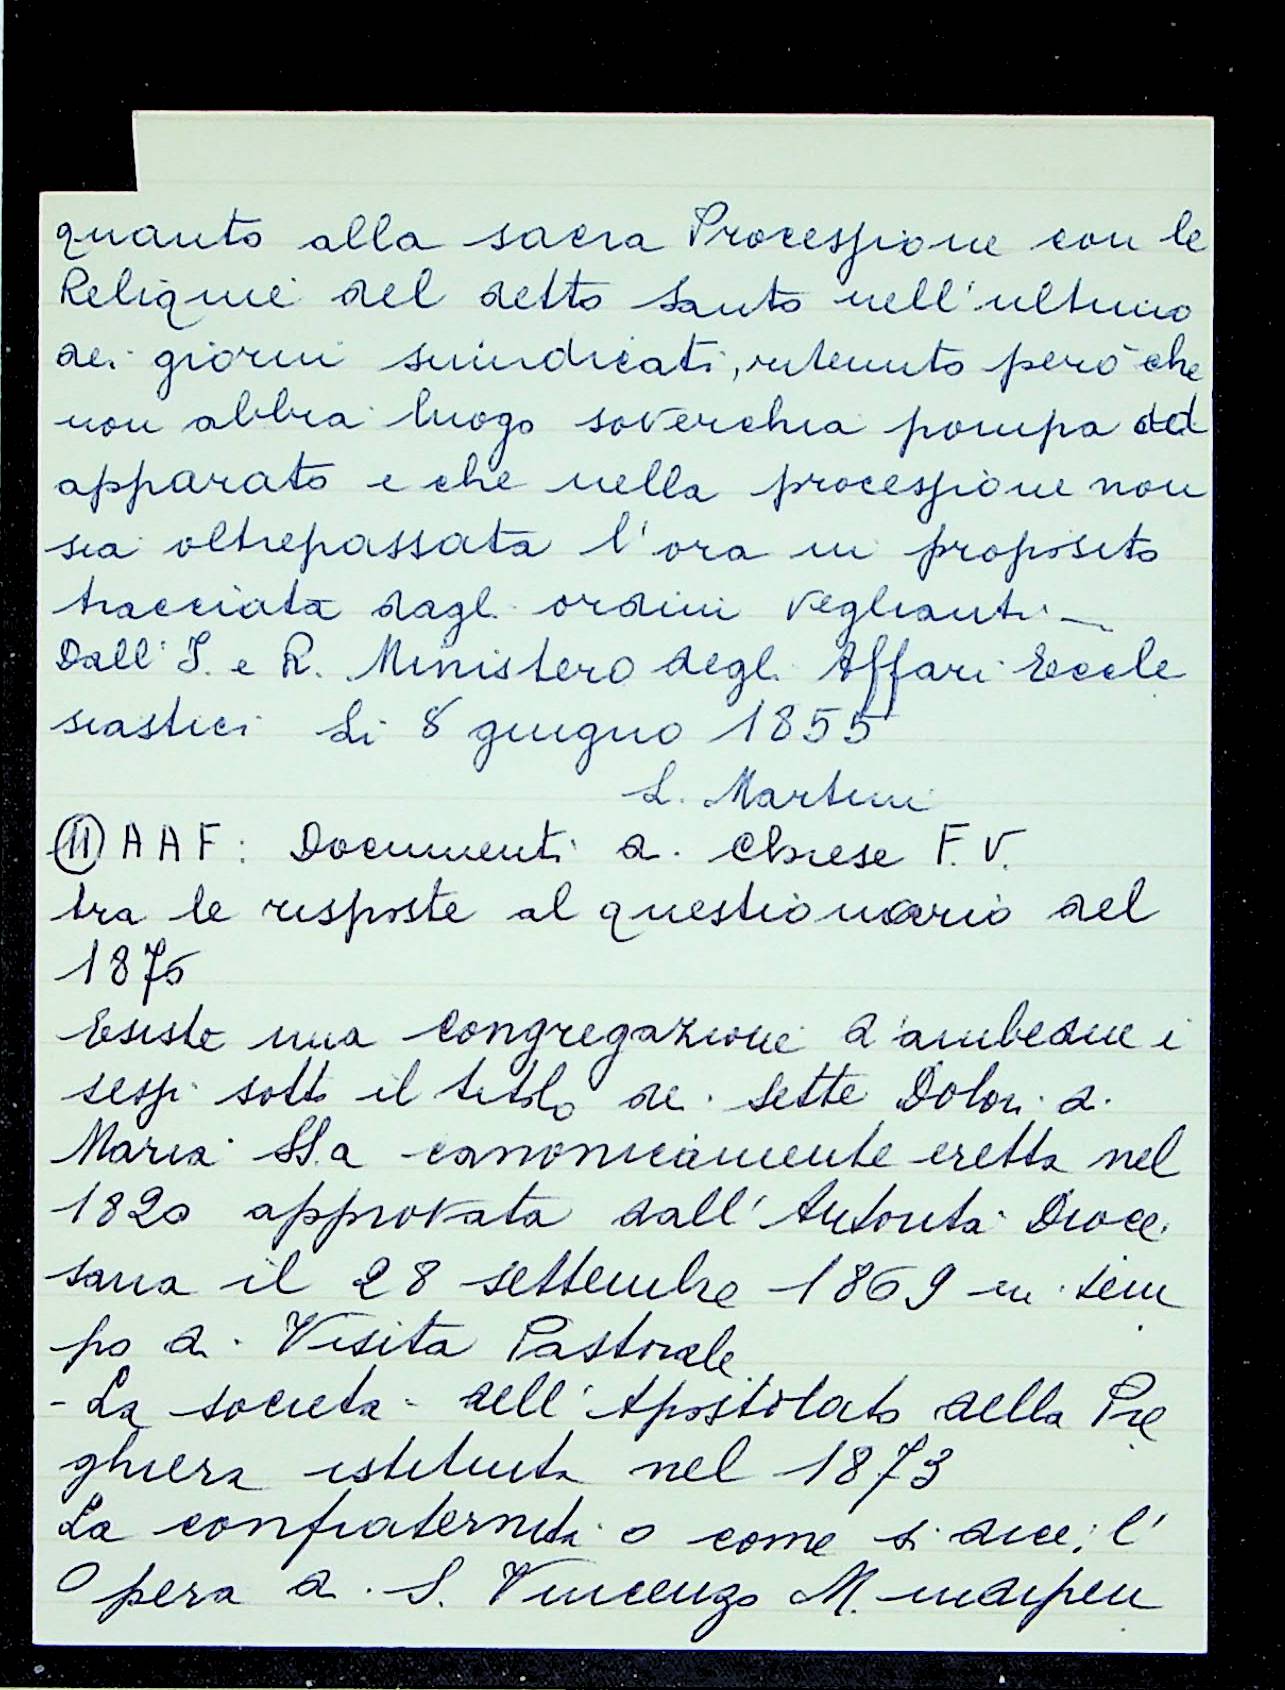 quanto alla sacra Processione con le
Reliquie del detto Santo nell'ultimo
dei giorni suindicati, ritenuto però che
non abbia luogo soverchia pompa ed
apparato e che nella processione non
sia oltrepassata l'ora in proposito
tracciata dagli ordini veglianti —
Dall'I. e R. Ministero degli Affari Eccle
siastici Li 8 giugno 1855
L. Martini
(11) AAF: Documenti di Chiese F. V.
tra le risposte al questionario del
1875
Esiste una Congregazione d'ambedue i
sessi sotto il titolo dei sette Dolori di
Maria SS.a canonicamente eretta nel
1820 approvata dall'Autorità Dioce
sana il 28 settembre 1869 in tem
po di Visita Pastorale
- La società dell'Apostolato della Pre
ghiera istituita nel 1873
La confraternita o come si dice; l'
Opera di S. Vincenzo M. indipen